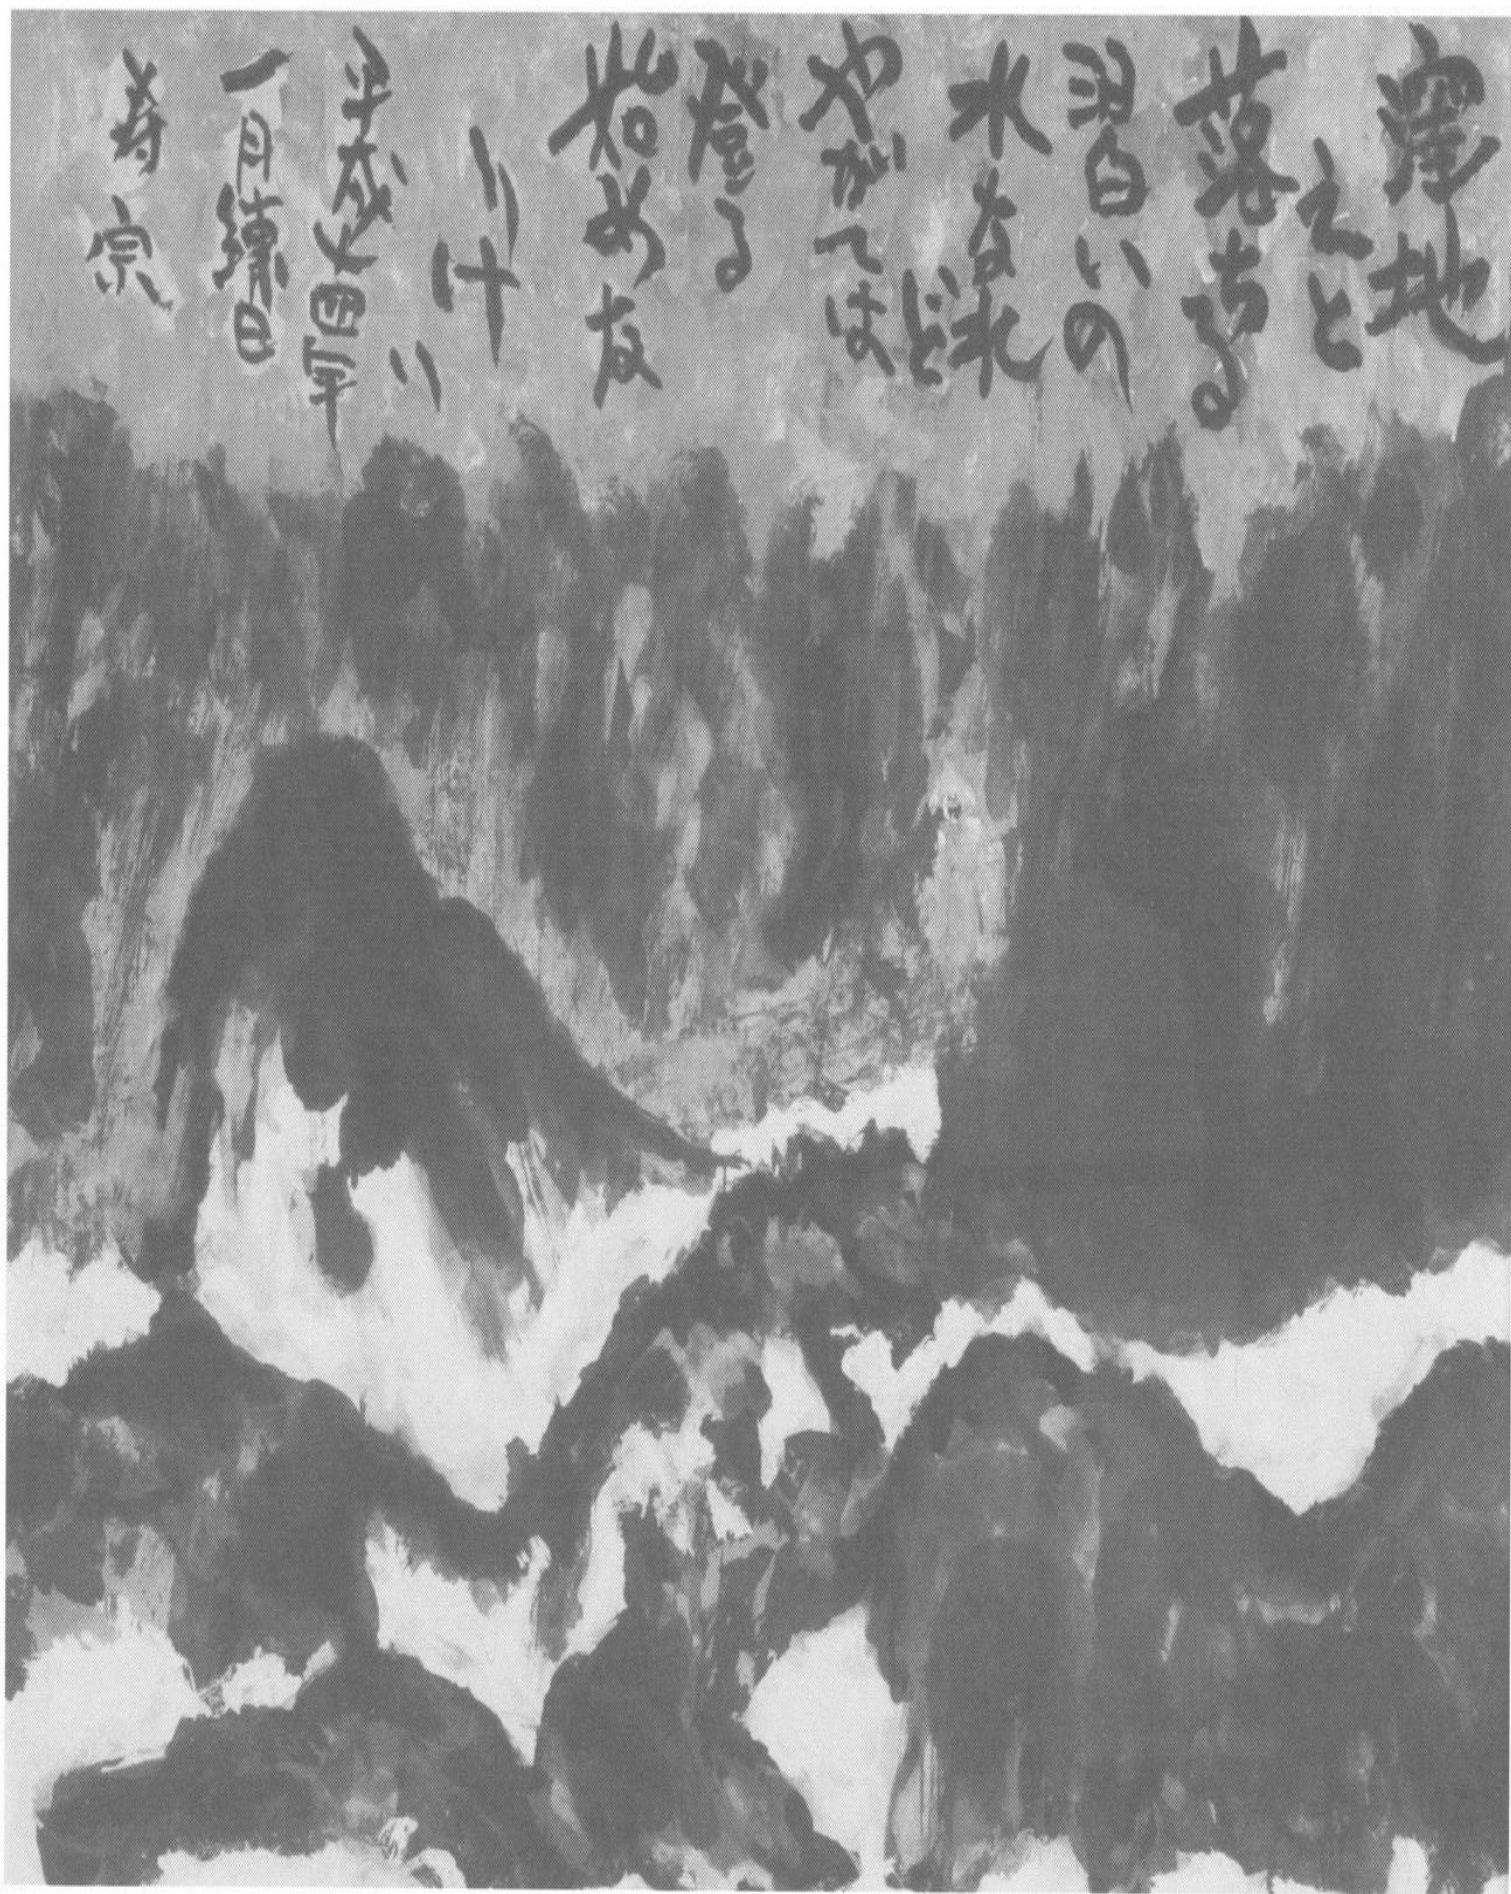 窪地
えと
落ちる
習いの
水なれ
ど
やがては
登る
始めな
りけ
り
平成十四年
一月日
寿宗